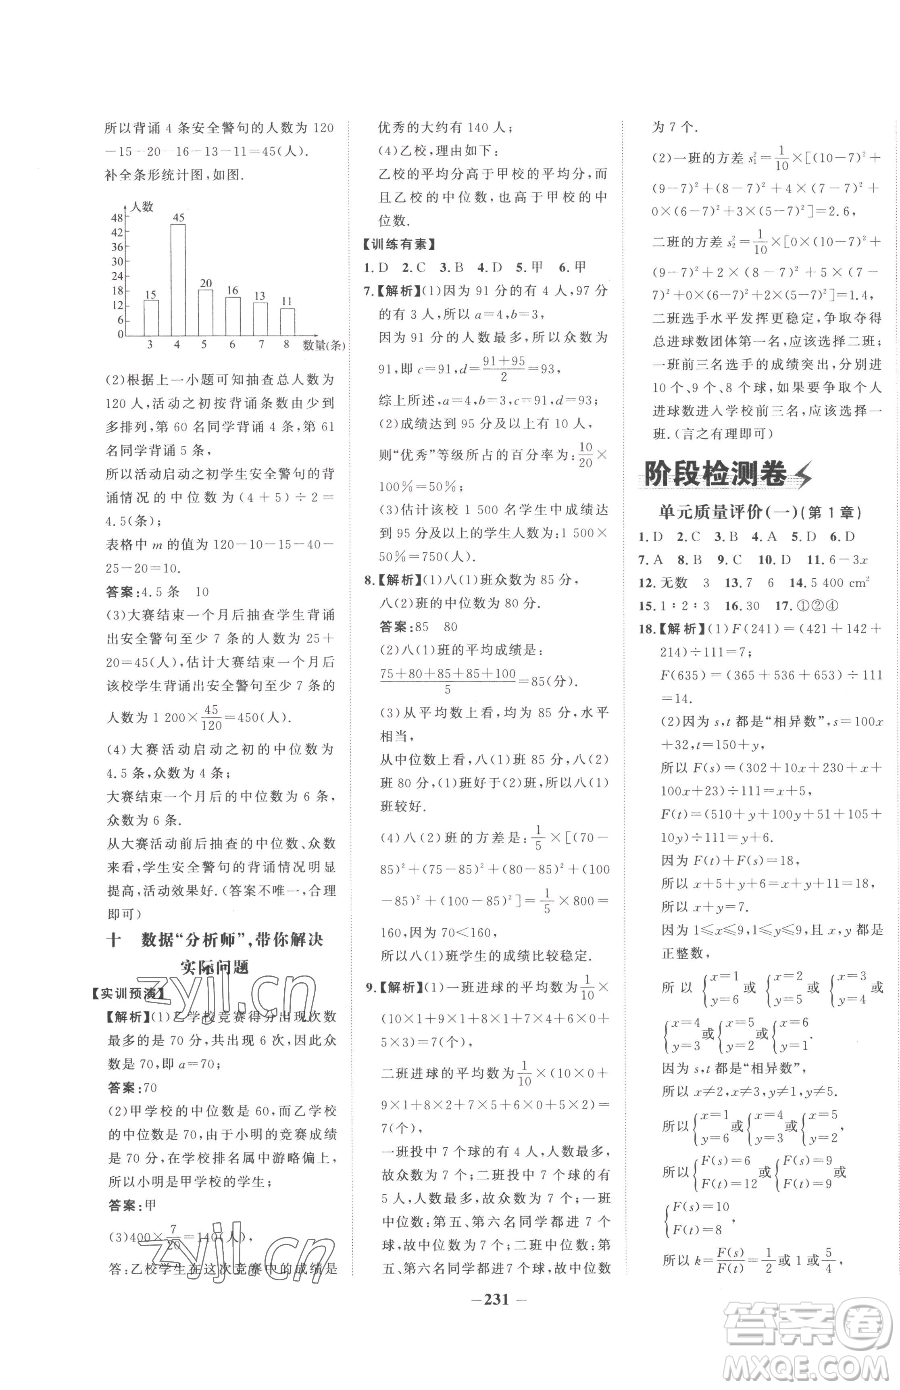 所以背诵 4 条安全警句的人数为 120
-15-20-16-13-11=45(人).
补全条形统计图,如图.
人数
48
42
36
30
24
18
12
6
0
15
45
20
16
13
11
3 4 5 6 7 8 数量(条)
(2)根据上一小题可知抽查总人数为
120 人,活动之初按背诵条数由少到
多排列,第 60 名同学背诵 4 条,第 61
名同学背诵 5 条,
所以活动启动之初学生安全警句的背
诵情况的中位数为(4+5)÷2=
4.5(条);
表格中 m 的值为 120-10-15-40-
25-20=10.
答案:4.5 条 10
(3)大赛结束一个月后抽查学生背诵
出安全警句至少 7 条的人数为 25+
20=45(人),估计大赛结束一个月后
该校学生背诵出安全警句至少 7 条的
人数为 1 200×45/120=450(人).
(4)大赛活动启动之初的中位数为
4.5 条,众数为 4 条;
大赛结束一个月后的中位数为 6 条,
众数为 6 条.
从大赛活动前后抽查的中位数、众数
来看,学生安全警句的背诵情况明显
提高,活动效果好.(答案不唯一,合理
即可)
十 数据“分析师”,带你解决
实际问题
【实训预演】
【解析】(1)乙学校竞赛得分出现次数
最多的是 70 分,共出现 6 次,因此众
数是 70,即 a=70;
答案:70
(2)甲学校的中位数是 60,而乙学校
的中位数是 80,由于小明的竞赛成绩
是 70 分,在学校中游略偏上,
所以小明是甲学校的学生;
答案:甲
(3)400×7/20=140(人),
答:乙校学生在这次竞赛中的成绩是
优秀的大约有 140 人;
(4)乙校.理由如下:
乙校的平均分高于甲校的平均分,而
且乙校的中位数,也高于甲校的中
位数.
【训练有素】
1.D 2.C 3.B 4.D 5.甲 6.甲
7.【解析】(1)因为 91 分的有 4 人,97 分
的有 3 人,所以 a=4,b=3,
因为 91 分的人数最多,所以众数为
91,即 c=91,d=(91+95)/2=93,
综上所述,a=4,b=3,c=91,d=93;
(2)成绩达到 95 分及以上有 10 人,
则“优秀”等级所占的百分率为10/20×
100%=50%;
(3)估计该校 1 500 名学生中成绩达
到 95 分及以上的学生人数为 1 500×
50%=750(人).
8.【解析】(1)八(1)班众数为 85 分,
八(2)班中位数为 80 分.
答案:85 80
(2)八(1)班的平均成绩是:
(75+80+85+85+100)/5=85(分).
(3)从平均数上看,均为 85 分,水平
相当,
从中位数上看,八(1)班 85 分,八(2)
班 80 分,八(1)班好于(2)班,故八(1)
班较好.
(4)八(2)班的方差是:1/5×[(70-
85)²+(75-85)²+(80-85)²+(100
-85)²+(100-85)²]=1/5×800=
160,因为 70<160,
所以八(1)班的成绩比较稳定.
9.【解析】(1)一班进球的平均数为1/10×
(10×1+9×1+8×1+7×4+6×0+
5×3)=7(个),
二班进球的平均数为1/10×(10×0+
9×1+8×2+7×5+6×0+5×2)=
7(个),
一班投中 7 个球的有 4 人,人数最多,
故众数为 7 个;二班投中 7 个球的有
5 人,人数最多,故众数为 7 个;一班
中位数:第五、第六名同学都进 7 个
球,故中位数为 7 个;二班中位数:第
五、第六名同学都进 7 个球,故中位数
为 7 个.
(2)一班的方差 s₁²=1/10×[(10-7)²+
(9-7)²+(8-7)²+4×(7-7)²+
0×(6-7)²+3×(5-7)²]=2.6,
二班的方差 s₂²=1/10×[0×(10-7)²+
(9-7)²+2×(8-7)²+5×(7-7)²+
0×(6-7)²+2×(5-7)²]=1.4,
二班选手水平发挥更稳定,争取夺得
总进球数团体第一名,应该选择二班;
一班前三名选手的成绩突出,分别进
10 个、9 个、8 个球,如果要争取个人
进球数进入学校前三名,应该选择一
班.(言之有理即可)
阶段检测卷
单元质量评价(一)(第 1 章)
1.D 2.C 3.B 4.A 5.D 6.D
7.A 8.B 9.C 10.D 11.6-3x
12.无数 3 13.7 6 14.5 400 cm²
15.1∶2∶3 16.30 17.①②④
18.【解析】(1)F(241)=(421+142+
214)÷111=7;
F(635)=(365+536+653)÷111
=14.
(2)因为 s,t 都是“相异数”,s=100x
+32,t=150+y,
所以 F(s)=(302+10x+230+x+
100x+23)÷111=x+5,
F(t)=(510+y+100y+51+105+
10y)÷111=y+6.
因为 F(t)+F(s)=18,
所以 x+5+y+6=x+y+11=18,
所以 x+y=7.
因为 1≤x≤9,1≤y≤9,x,y 都是
正整数,
所以{x=1 y=6或{x=2 y=5或{x=3 y=4或
{x=4 y=3或{x=5 y=2或{x=6 y=1.
因为 s,t 都是“相异数”,
所以 x≠2,x≠3,y≠1,y≠5,
所以{x=1 y=6或{x=4 y=3或{x=5 y=2,
所以{F(s)=6 F(t)=12或{F(s)=9 F(t)=9或
{F(s)=10 F(t)=8,
所以 k=F(s)/F(t)=1/2或 1 或5/4.
- 231 -
zyjl.cn
zyjl.cn
答案圈
MXQE.COM